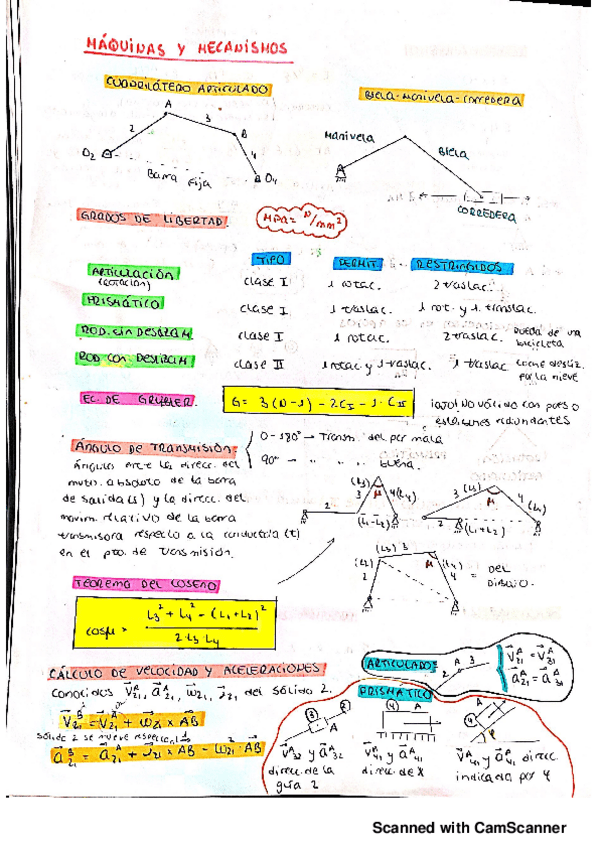 MÁQUINAS Y MECANISMOS
CUADRILÁTERO ARTICULADO
BIELA-MANIVELA-CORREDERA
A
2
3
B
4
O2
O4
Barra Fija
Manivela
Biela
CORREDERA
GRADOS DE LIBERTAD.
MPa = N/mm²
TIPO PERMIT. RESTRINGIDOS
ARTICULACIÓN (ROTACIÓN) clase I 1 rotac. 2 traslac.
PRISMÁTICO clase I 1 traslac. 1 rot. y 1. translac.
ROD. sin DESLIZAM clase I 1 rotac. 2 traslac. rueda de una bicicleta
ROD con DESLIZAM clase II 1 rotac y 1 traslac. 1 traslac coche desliz. por la nieve
EC. DE GRÜBLER. G = 3(N-1) - 2CI - 1·CII ¡ojo! No válido con pares o eslabones redundantes
ÁNGULO DE TRANSMISIÓN:
0-180° → Transm. del par mala
90° → " " " buena.
Ángulo entre la direcc. del
movto. absoluto de la barra
de salida (s) y la direcc. del
movim. relativo de la barra
transmisora respecto a la conductora (t)
en el pto. de transmisión.
(L3)
3
μ
4(L4)
2
(L1-L2)
3 (L3)
μ
4 (L4)
2
(L1+L2)
(L3) 3
(L2) 2
μ
(L4) 4
= DEL DIBUJO.
TEOREMA DEL COSENO
cosμ = L3² + L4² - (L1+L2)² / 2·L3·L4
CÁLCULO DE VELOCIDAD Y ACELERACIONES
Conocidos V21A, a21A, ω21, α21 del sólido 2.
V21B = V21A + ω21 x AB
sólido 2 se mueve respecto al 1
a21B = a21A + α21 x AB - ω21² · AB
ARTICULADO:
A
2
3
V21A = V31A
a21A = a31A
PRISMÁTICO
3
2
A
V32A y a32A
direcc. de la
guía 2
4
A
V41A y a41A
direcc. de X
4
A
φ
V41A y a41A direcc.
indicada por φ
Scanned with CamScanner